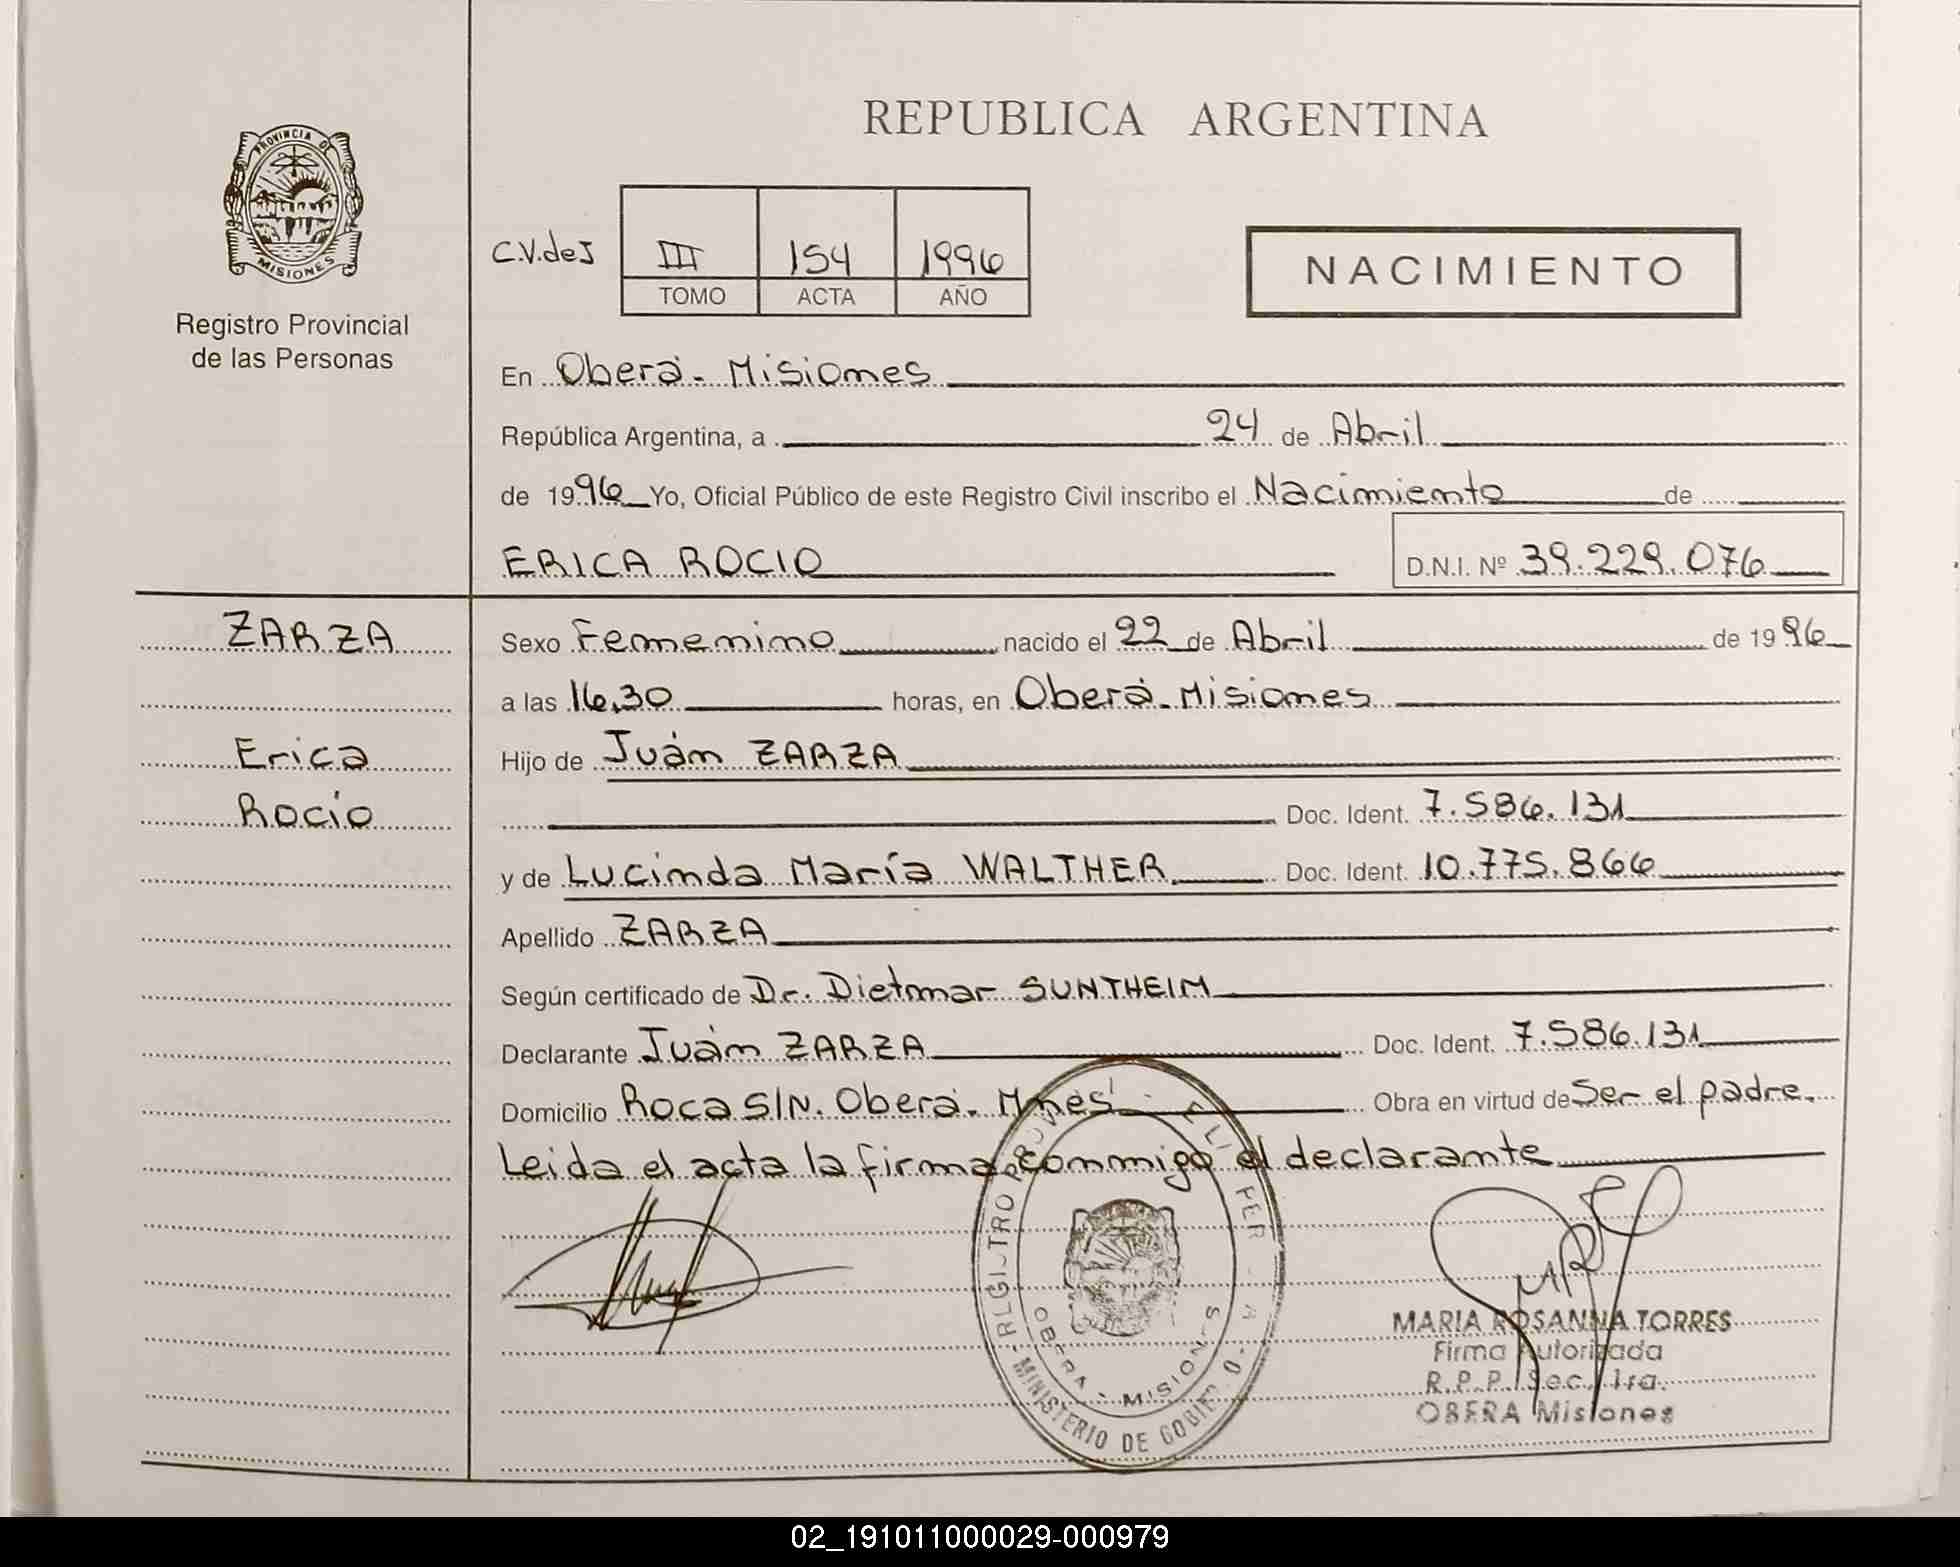 REPUBLICA ARGENTINA
PROVINCIA DE
MISIONES
Registro Provincial
de las Personas
C.V.deJ III 154 1996
TOMO ACTA AÑO
NACIMIENTO
En Oberá - Misiones
República Argentina, a 24 de Abril
de 1996 Yo, Oficial Público de este Registro Civil inscribo el Nacimiento de
ERICA ROCIO D.N.I. Nº 39.229.076
ZARZA
Erica
Rocío
Sexo Femenino nacido el 22 de Abril de 1996
a las 16,30 horas, en Oberá - Misiones
Hijo de Juán ZARZA
Doc. Ident. 7.586.131
y de Lucinda María WALTHER Doc. Ident. 10.775.866
Apellido ZARZA
Según certificado de Dr. Dietmar SUNTHEIM
Declarante Juán ZARZA Doc. Ident. 7.586.131
Domicilio Roca S/N. Oberá - Mnes Obra en virtud de Ser el padre.
Leida el acta la firma conmigo el declarante
OBERA - MISIONES
MINISTERIO DE GOBIE
MARIA ROSANNA TORRES
Firma Autorizada
R.P.P. Sec. 1ra.
OBERA Misiones
02_191011000029-000979